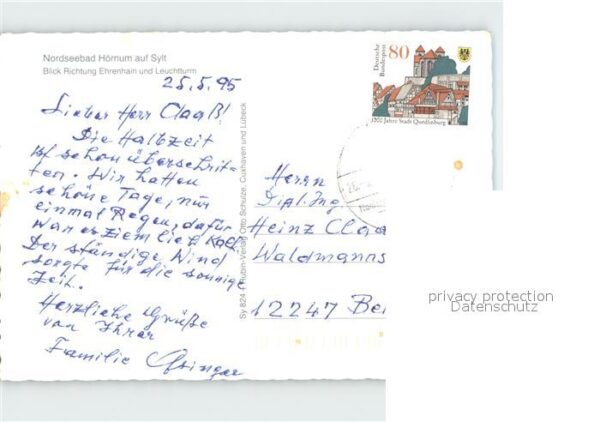 Nordseebad Hörnum auf Sylt
Blick Richtung Ehrenhain und Leuchtturm
25.5.95
Lieber Herr Claaß!
Die Halbzeit
ist schon überschrit-
ten. Wir hatten
schöne Tage, nur
einmal Regen, dafür
war es ziemlich kalt.
Der ständige Wind
sorgte für die sonnige
Zeit.
Herzliche Grüße
von Ihrer
Familie
Sy 824 Rubin-Verlag Otto Schulze, Cuxhaven und Lübeck
Deutsche
Bundespost
80
1000 Jahre Stadt Quedlinburg
Herrn
Dipl. Ing
Heinz Claa
Waldmanns
12247 Be
privacy protection
Datenschutz